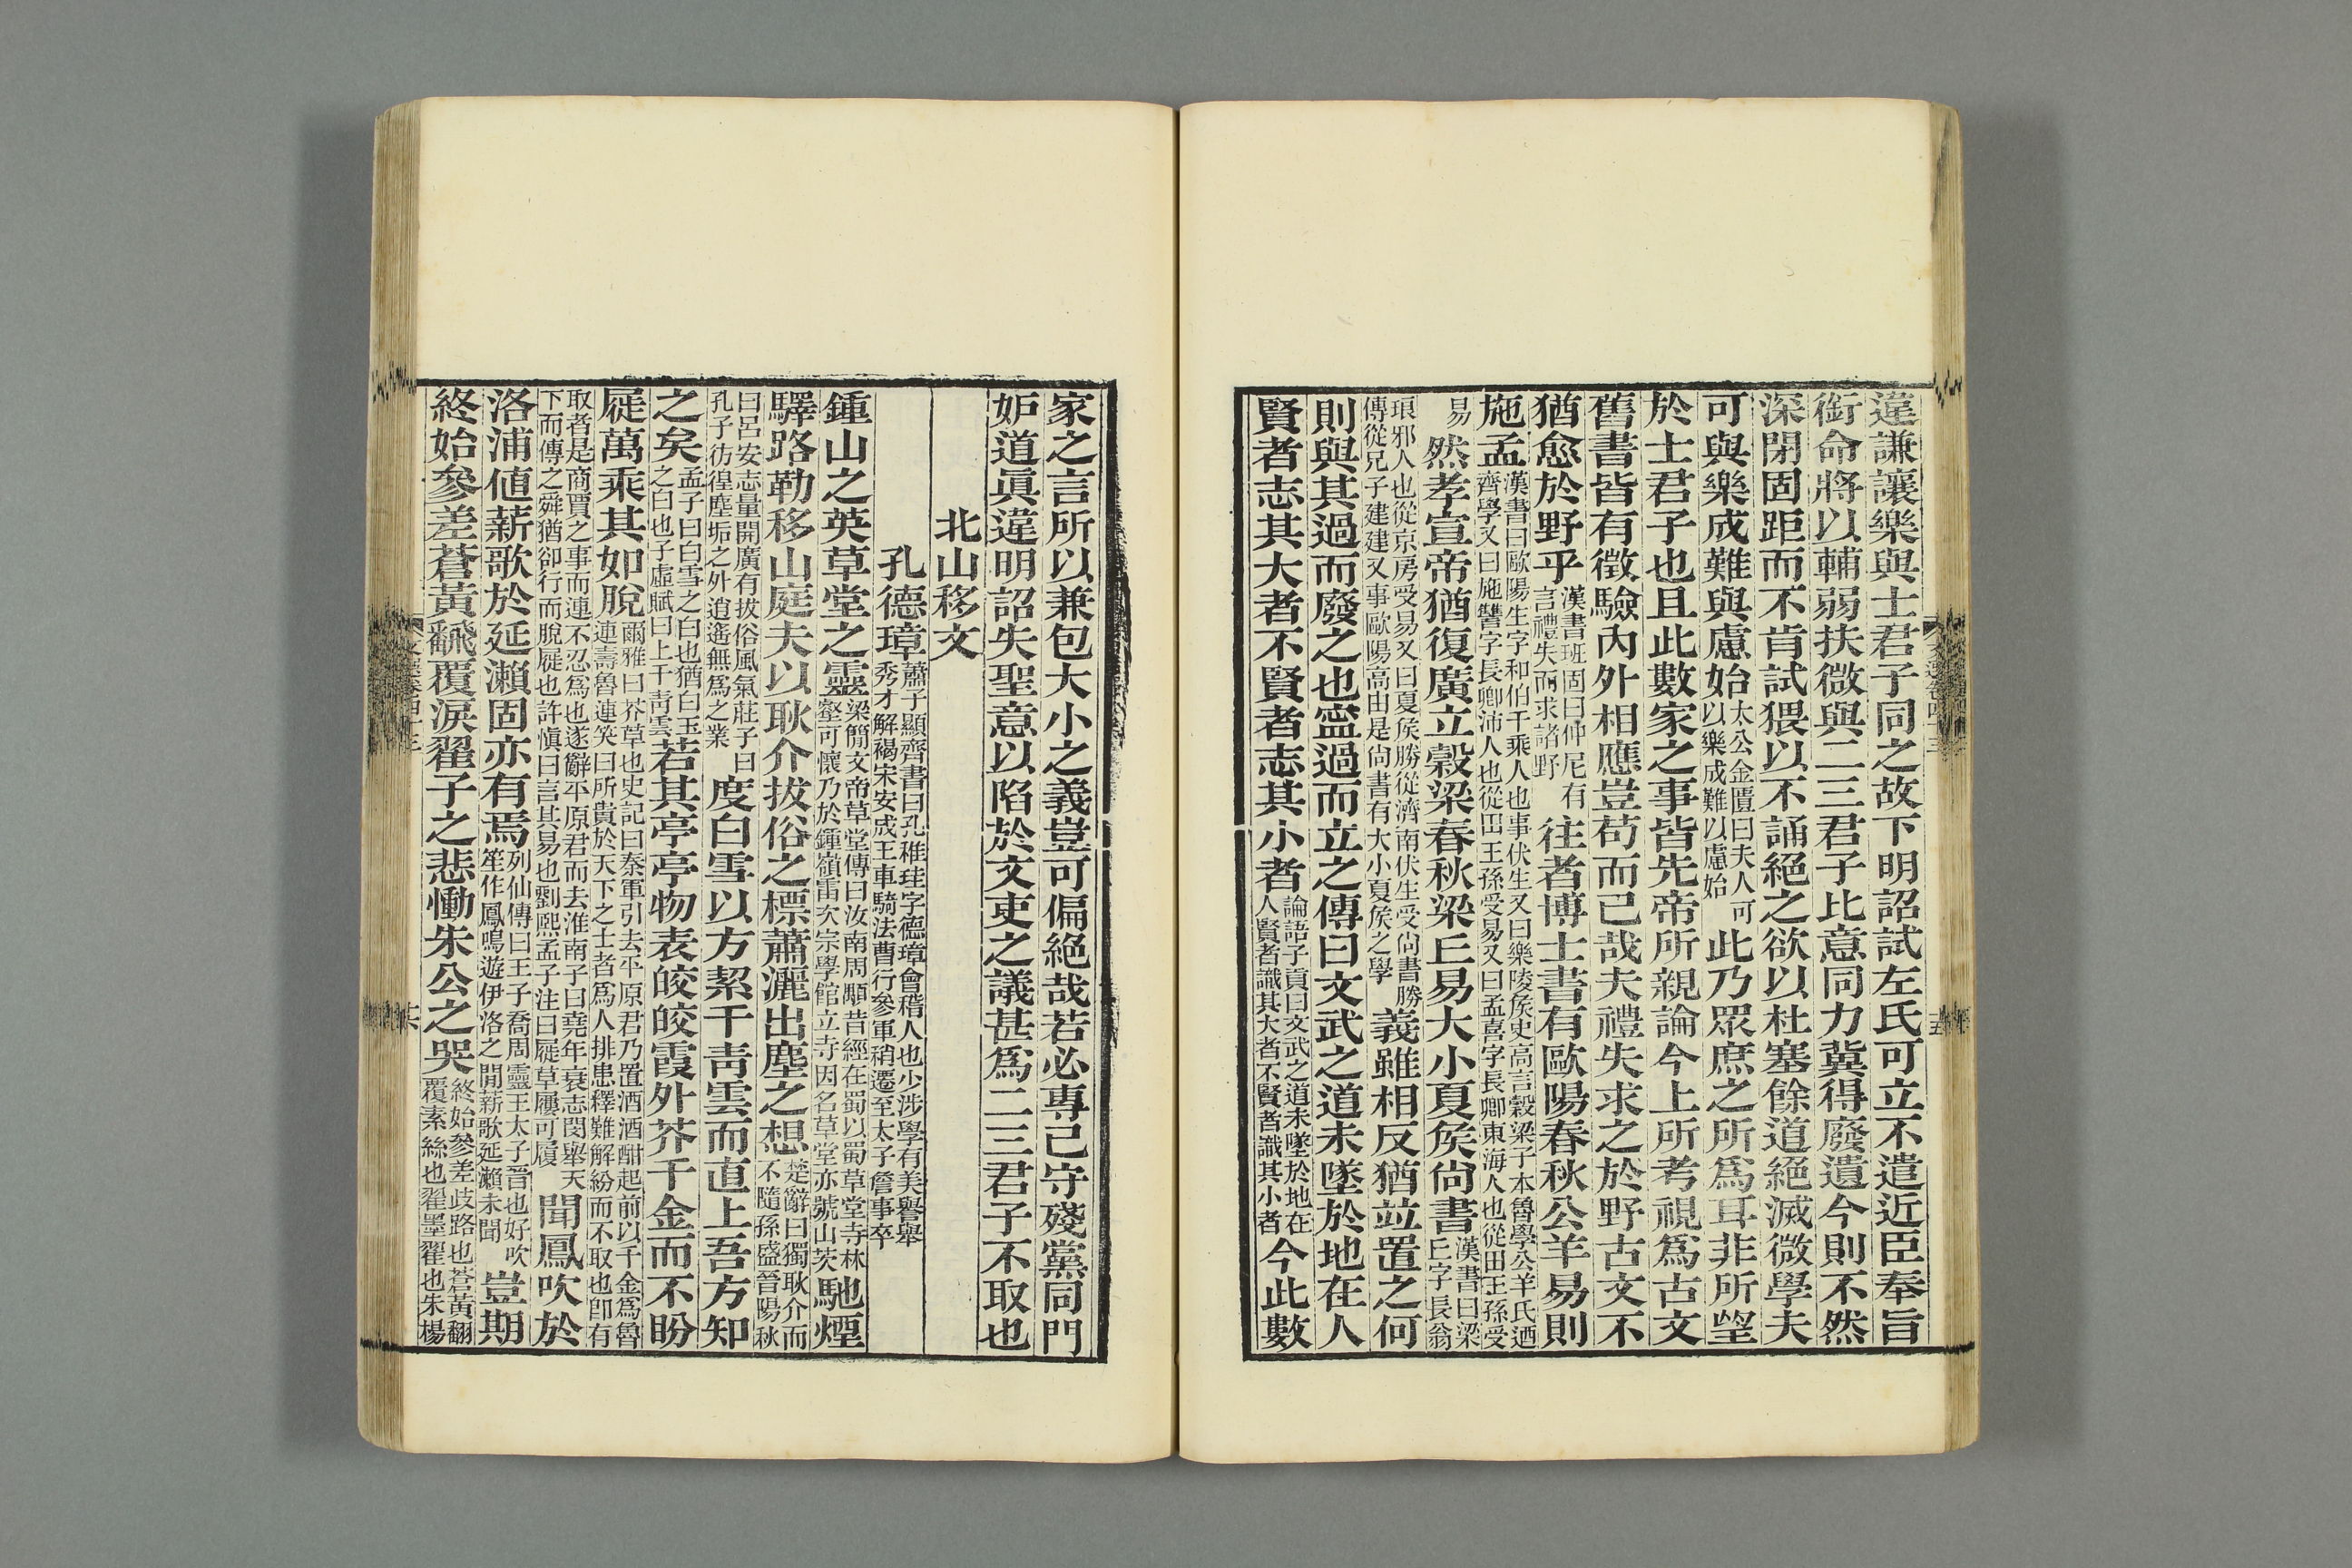 違謙讓樂與士君子同之故下明詔試左氏可立不遣近臣奉旨
銜命將以輔弱扶微與二三君子比意同力冀得廢遺今則不然
深閉固距而不肯試猥以不誦絕之欲以杜塞餘道絕滅微學夫
可與樂成難與慮始太公金匱曰夫人可以樂成難以慮始此乃眾庶之所爲耳非所望
於士君子也且此數家之事皆先帝所親論今上所考視爲古文
舊書皆有徵驗內外相應豈苟而已哉夫禮失求之於野古文不
猶愈於野乎漢書班固曰仲尼有言禮失而求諸野往者博士書有歐陽春秋公羊易則
施孟漢書曰歐陽生字和伯千乘人也事伏生又曰樂陵侯史高言穀梁子本魯學公羊氏迺齊學又曰施讐字長卿沛人也從田王孫受易又曰孟喜字長卿東海人也從田王孫受
易然孝宣帝猶復廣立穀梁春秋梁丘易大小夏侯尙書漢書曰梁丘字長翁
琅邪人也從京房受易又曰夏侯勝從濟南伏生受尙書勝傳從兄子建建又事歐陽高由是尙書有大小夏侯之學義雖相反猶竝置之何
則與其過而廢之也寧過而立之傳曰文武之道未墜於地在人
賢者志其大者不賢者志其小者論語子貢曰文武之道未墜於地在人賢者識其大者不賢者識其小者今此數
家之言所以兼包大小之義豈可偏絕哉若必專己守殘黨同門
妒道眞違明詔失聖意以陷於文吏之議甚爲二三君子不取也
北山移文
孔德璋蕭子顯齊書曰孔稚珪字德璋會稽人也少涉學有美譽舉秀才解褐宋安成王車騎法曹行參軍稍遷至太子詹事卒
鍾山之英草堂之靈梁簡文帝草堂傳曰汝南周顒昔經在蜀以蜀草堂寺林壑可懷乃於鍾嶺雷次宗學館立寺因名草堂亦號山茨馳煙
驛路勒移山庭夫以耿介拔俗之標蕭灑出塵之想楚辭曰獨耿介而不隨孫盛晉陽秋
曰呂安志量開廣有拔俗風氣莊子曰孔子彷徨塵垢之外逍遙無爲之業度白雪以方絜干靑雲而直上吾方知
之矣孟子曰白雪之白也猶白玉之白也子虛賦曰上干靑雲若其亭亭物表皎皎霞外芥千金而不盼
屣萬乘其如脫爾雅曰芥草也史記曰秦軍引去平原君乃置酒酒酣起前以千金爲魯連壽魯連笑曰所貴於天下之士者爲人排患釋難解紛而不取也卽有
取者是商賈之事而連不忍爲也遂辭平原君而去淮南子曰堯年衰志閔舉天下而傳之舜猶卻行而脫屣也許愼曰言其易也劉熙孟子注曰屣草屨可履聞鳳吹於
洛浦値薪歌於延瀨固亦有焉列仙傳曰王子喬周靈王太子晉也好吹笙作鳳鳴遊伊洛之閒薪歌延瀨未聞豈期
終始參差蒼黃飜覆淚翟子之悲慟朱公之哭終始參差歧路也蒼黃翻覆素絲也翟墨翟也朱楊